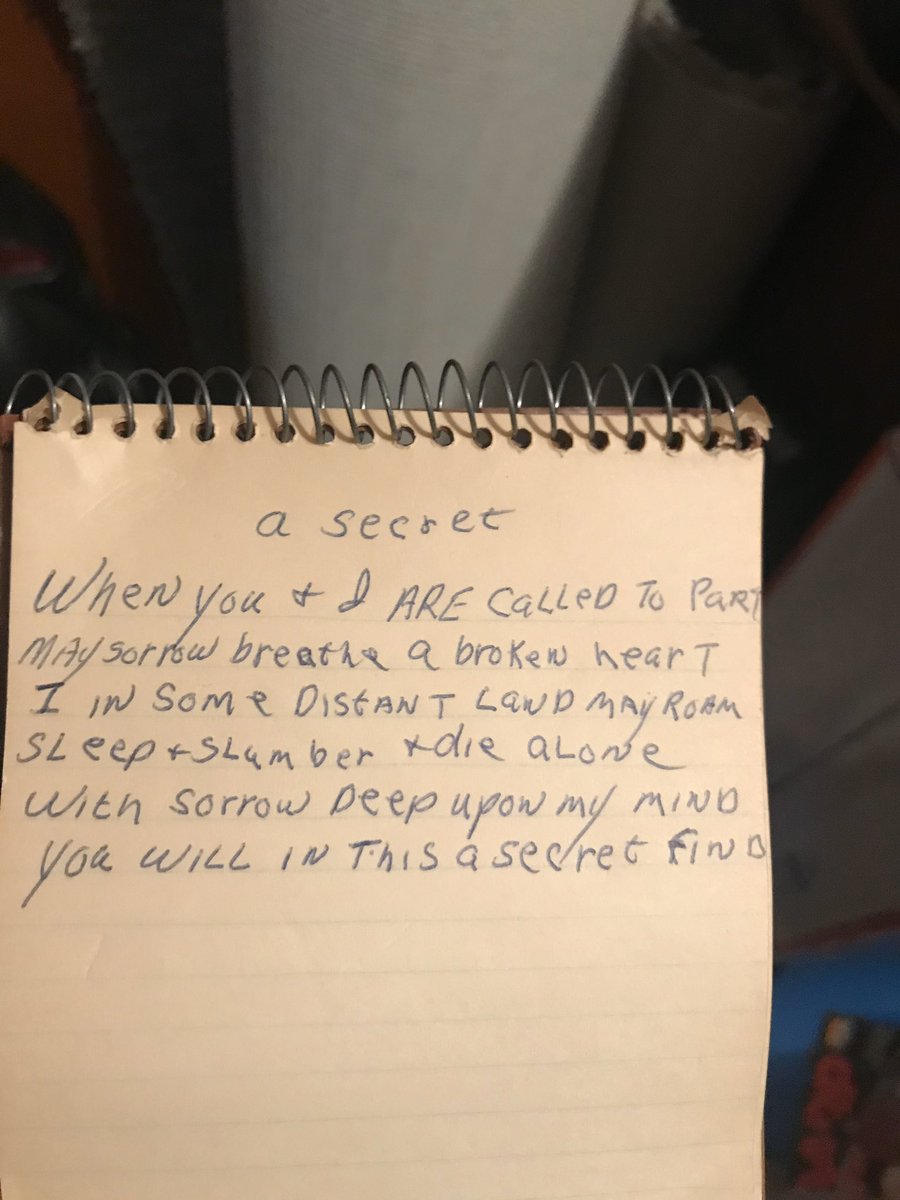 a secret
When you + I ARE CALLED To PART
MAy sorrow breathe a broken heart
I in Some DISTANT LAND MAY ROAM
SLeep + SLumber + die aLone
With sorrow Deep upon my MIND
you WILL IN This a secret FIND